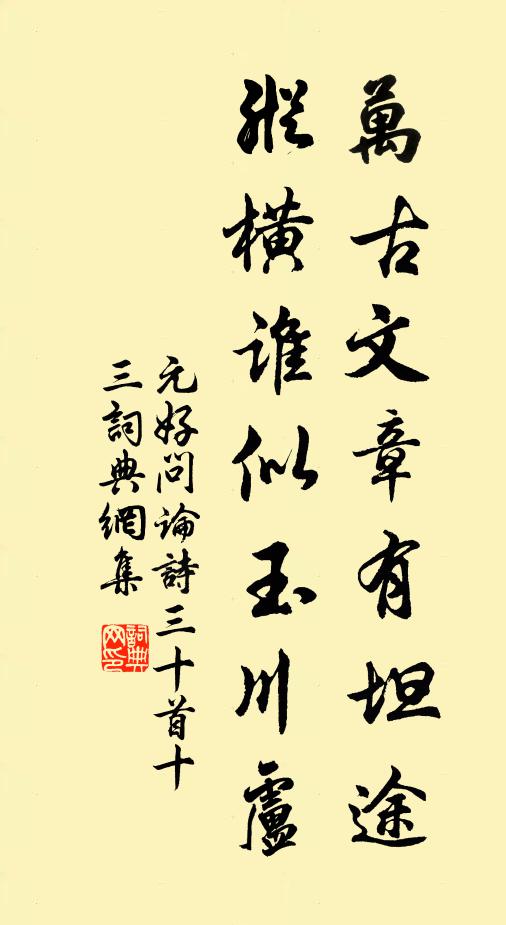 萬古文章有坦途
縱橫誰似玉川盧
元好問論詩三十首十
三詞典網集
詞典
网印